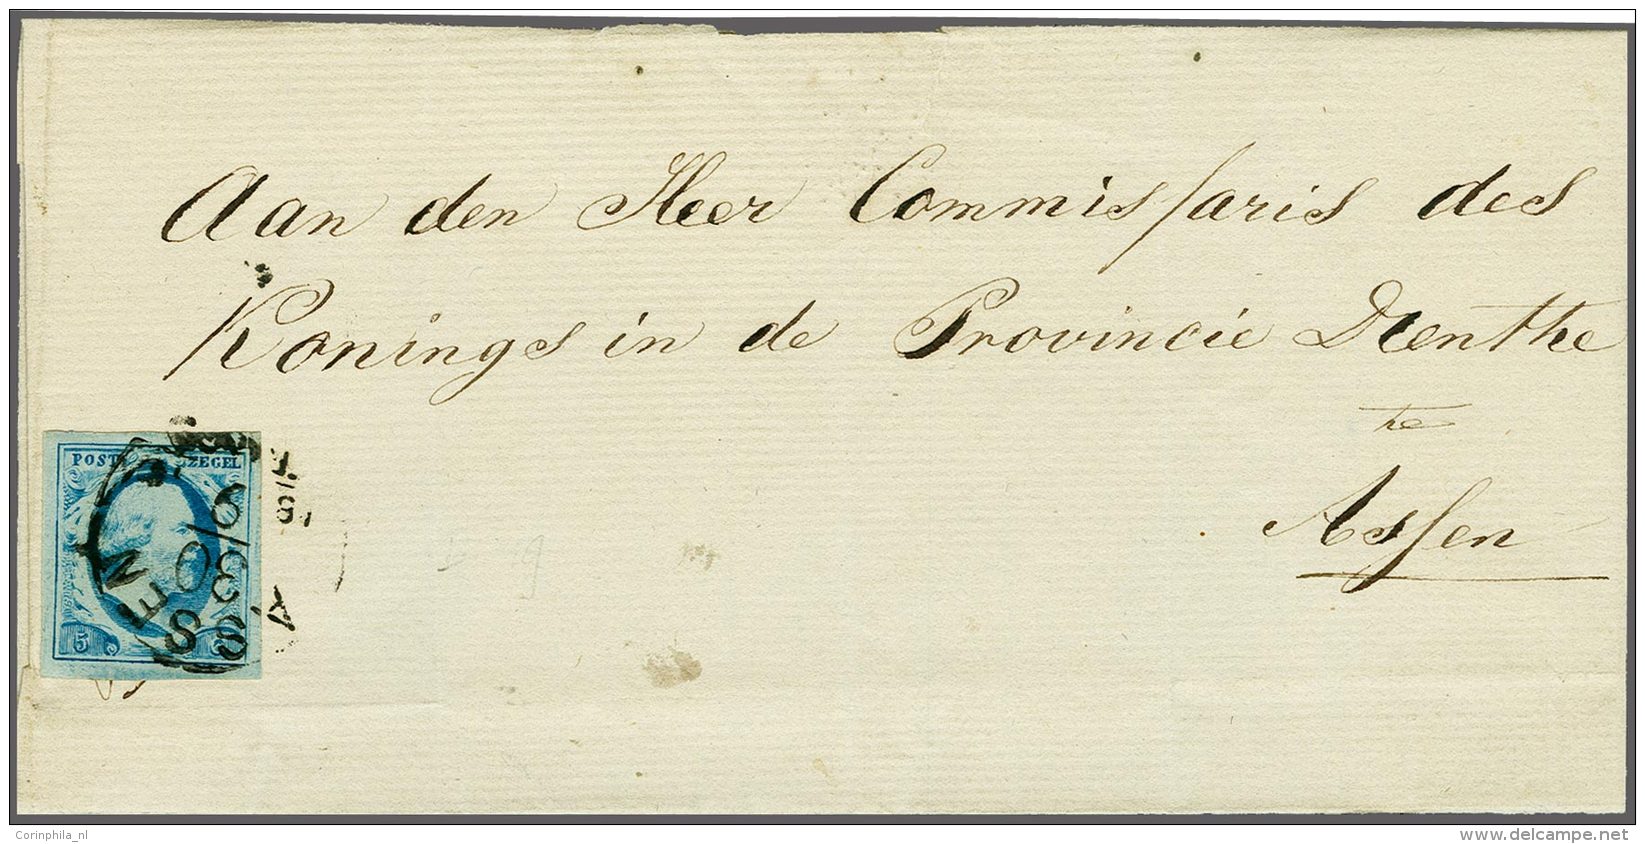 Aan den Heer Commissaris des
Konings in de Provincie Drenthe
te
Assen
POST ZEGEL
5
ASSEN
Corinphila_nl
https://www.delcampe.net